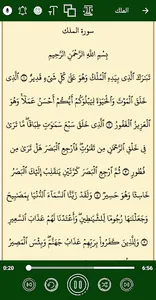 الملك
سورة الملك
بِسْمِ اللَّهِ الرَّحْمَنِ الرَّحِيمِ
تَبَارَكَ الَّذِي بِيَدِهِ الْمُلْكُ وَهُوَ عَلَى كُلِّ شَيْءٍ قَدِيرٌ ۝ الَّذِي
خَلَقَ الْمَوْتَ وَالْحَيَاةَ لِيَبْلُوَكُمْ أَيُّكُمْ أَحْسَنُ عَمَلًا وَهُوَ
الْعَزِيزُ الْغَفُورُ ۝ الَّذِي خَلَقَ سَبْعَ سَمَاوَاتٍ طِبَاقًا مَّا تَرَى
فِي خَلْقِ الرَّحْمَنِ مِن تَفَاوُتٍ فَارْجِعِ الْبَصَرَ هَلْ تَرَى مِن
فُطُورٍ ۝ ثُمَّ ارْجِعِ الْبَصَرَ كَرَّتَيْنِ يَنقَلِبْ إِلَيْكَ الْبَصَرُ
خَاسِئًا وَهُوَ حَسِيرٌ ۝ وَلَقَدْ زَيَّنَّا السَّمَاءَ الدُّنْيَا بِمَصَابِيحَ
وَجَعَلْنَاهَا رُجُومًا لِّلشَّيَاطِينِ وَأَعْتَدْنَا لَهُمْ عَذَابَ السَّعِيرِ
۝ وَلِلَّذِينَ كَفَرُوا بِرَبِّهِمْ عَذَابُ جَهَنَّمَ وَبِئْسَ الْمَصِيرُ
0:20 6:56